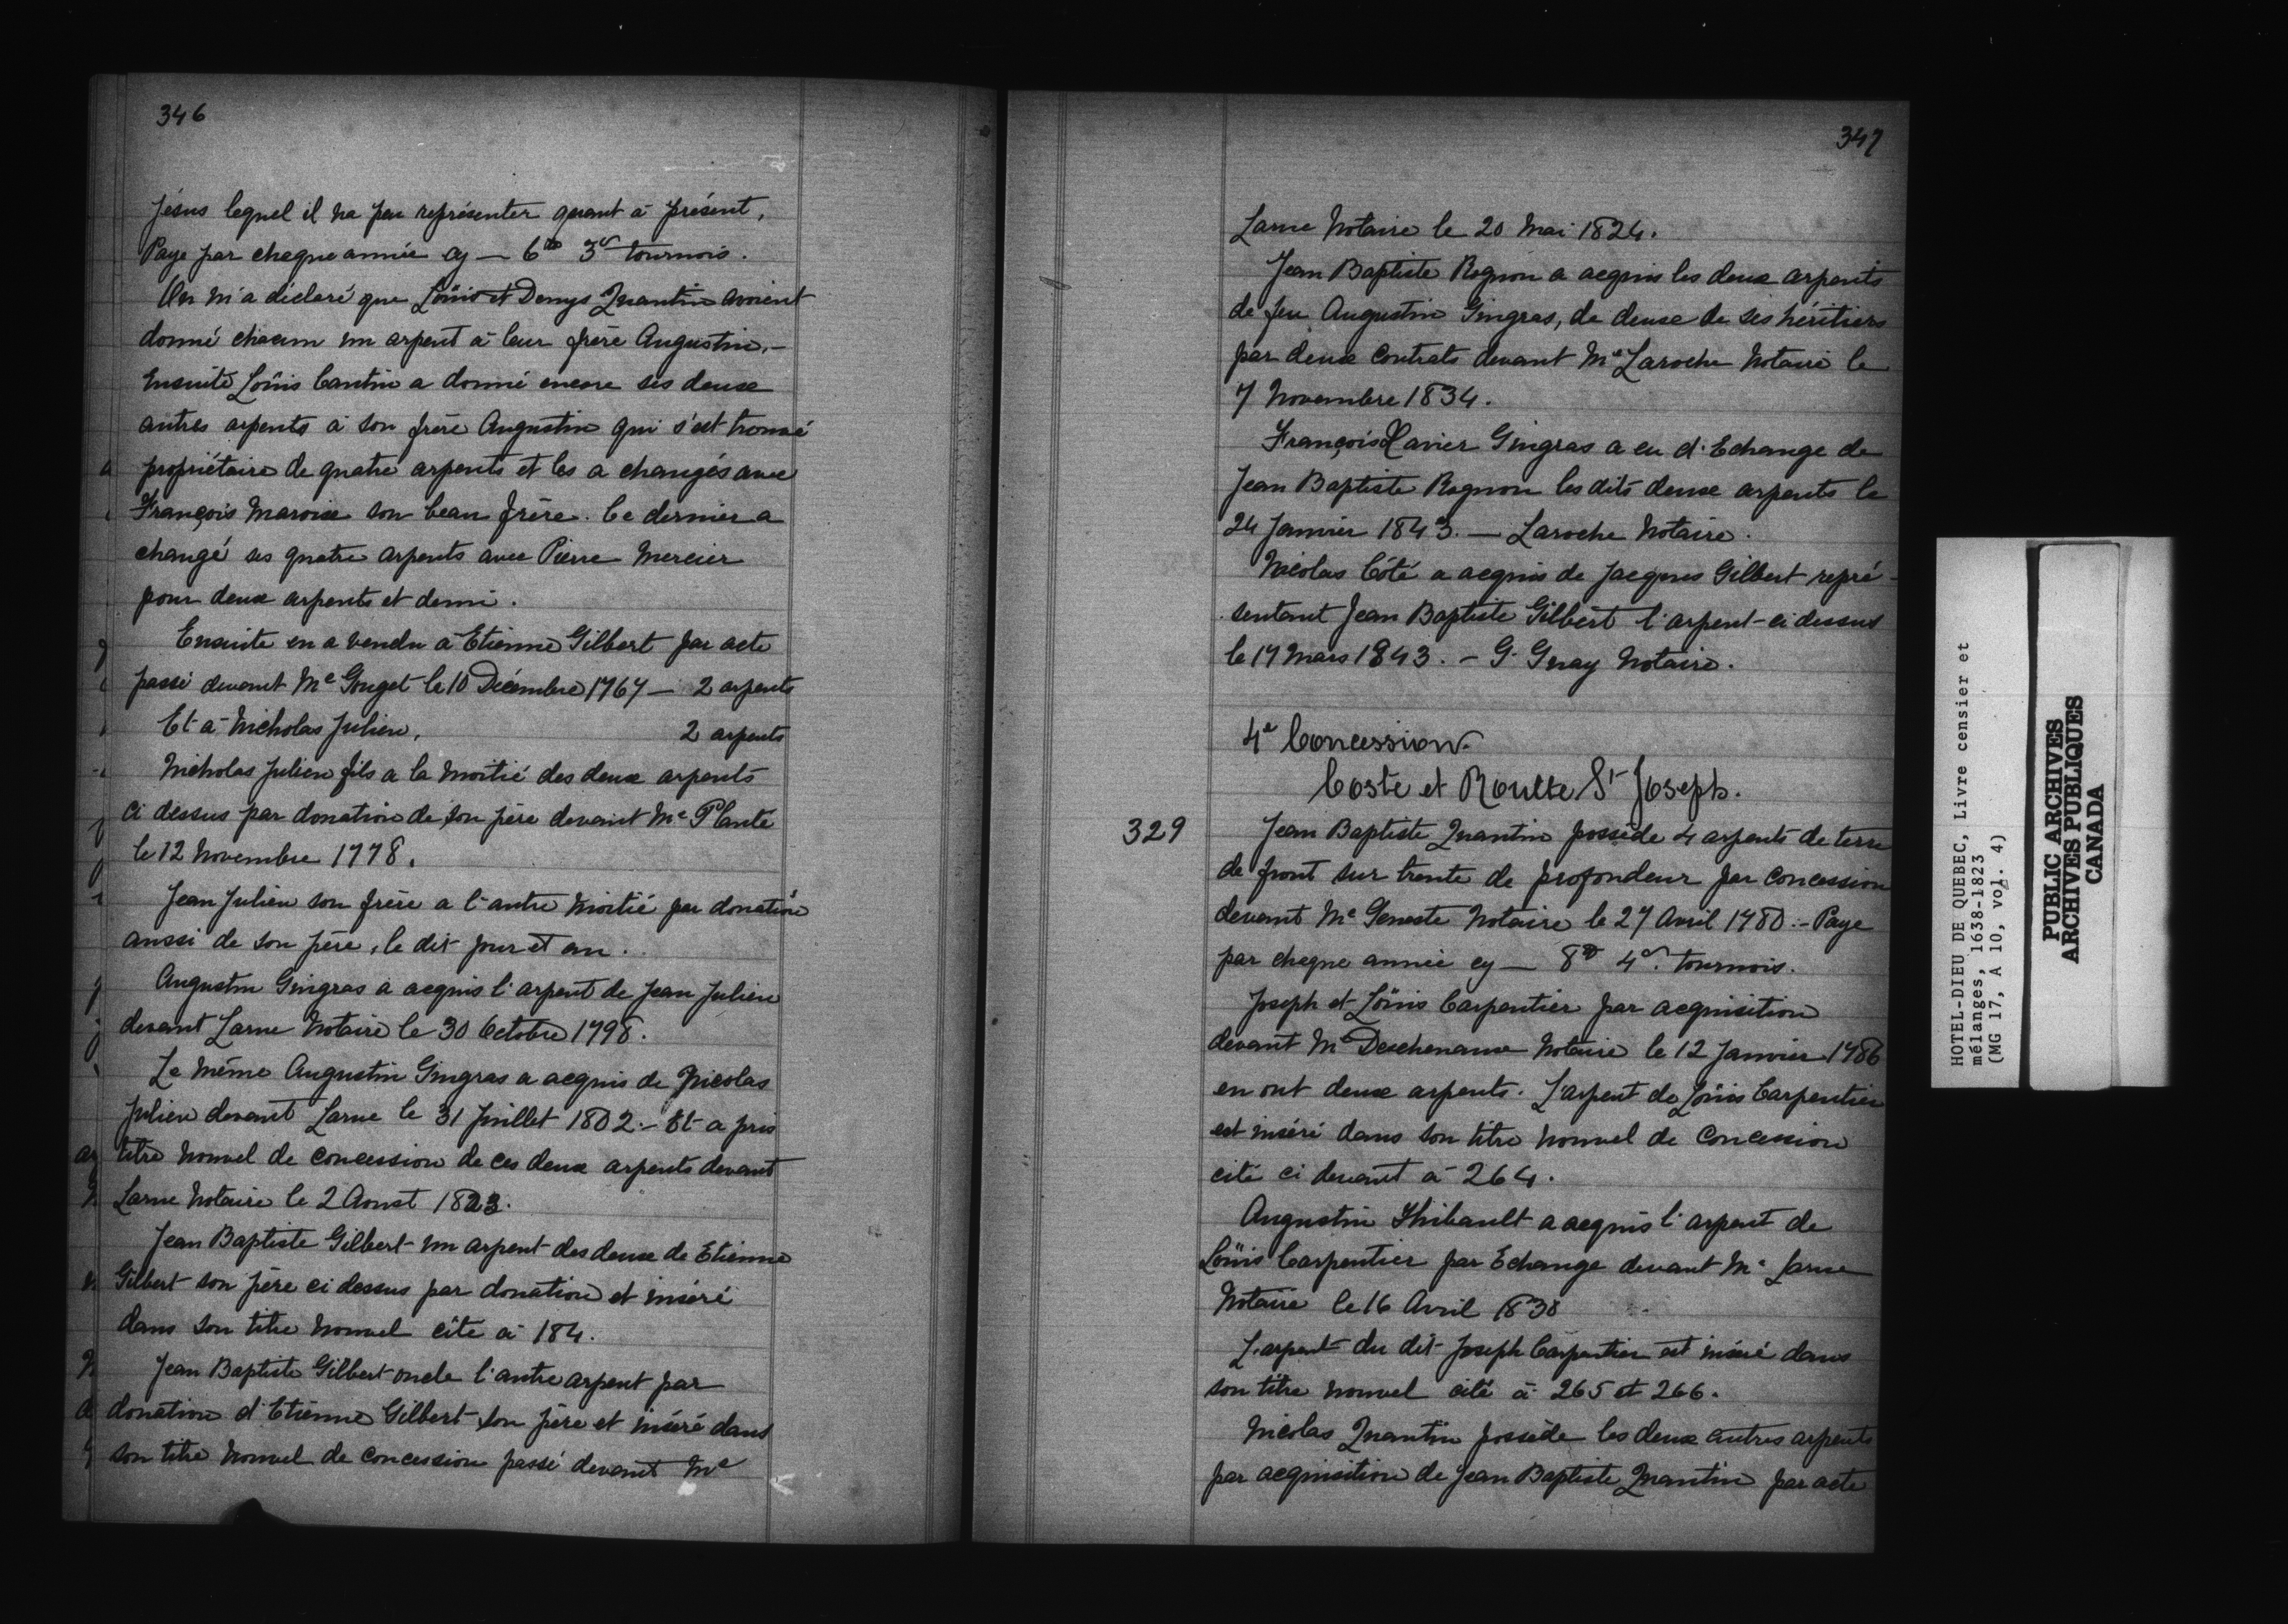 346
Jésus lequel il na peu représenter quant à présent,
Paye par chaque année cy — 6tt 3s tournois.
On m'a déclaré que Loüis et Denys Quantin avoient
donné chacun un arpent à leur frère Augustin. —
Ensuite Loüis Cantin a donné encore ses deux
autres arpents à son frère Augustin qui s'est trouvé
propriétaire de quatre arpents et les a changés avec
François Maroise son beau frère. Ce dernier a
changé ses quatre arpents avec Pierre Mercier
pour deux arpents et demi.
Ensuite en a vendu à Etienne Gilbert par acte
passé devant Me Gouget le 10 Décembre 1767 — 2 arpents
Et à Nicholas Julien, 2 arpents
Nicholas Julien fils a la moitié des deux arpents
ci dessus par donation de son père devant Me Planté
le 12 Novembre 1778.
Jean Julien son frère a l'autre moitié par donation
aussi de son père, le dit jour et an.
Augustin Gingras a acquis l'arpent de Jean Julien
devant Larue Notaire le 30 Octobre 1798.
Le même Augustin Gingras a acquis de Nicolas
Julien devant Larue le 31 Juillet 1802. — Et a pris
titre nouvel de concession de ces deux arpents devant
Larue Notaire le 2 Aoust 1823.
Jean Baptiste Gilbert un arpent des deux de Etienne
Gilbert son père ci dessus par donation et inséré
dans son titre nouvel cité à 184.
Jean Baptiste Gilbert oncle l'autre arpent par
donation d'Etienne Gilbert son père et inséré dans
son titre nouvel de concession passé devant Me
347
Larue Notaire le 20 Mai 1824.
Jean Baptiste Rognon a acquis les deux arpents
de feu Augustin Gingras, de deux de ses héritiers
par deux contrats devant Me Laroche Notaire le
7 Novembre 1834.
François Xavier Gingras a eu d'Echange de
Jean Baptiste Rognon les dits deux arpents le
24 Janvier 1843. — Laroche Notaire.
Nicolas Côté a acquis de Jacques Gilbert repré-
sentant Jean Baptiste Gilbert l'arpent ci dessus
le 17 Mars 1843. — G. Guay Notaire.
4e Concession.
Coste et Roulte St Joseph.
329
Jean Baptiste Quantin possède 4 arpents de terre
de front sur trente de profondeur par concession
devant Me Geneste Notaire le 27 Avril 1780. — Paye
par cheque année cy — 8tt 4s. tournois.
Joseph et Loüis Carpentier par acquisition
devant Me Deschenaux Notaire le 12 Janvier 1786
en ont deux arpents. L'arpent de Loüis Carpentier
est inséré dans son titre nouvel de concession
cité ci devant à 264.
Augustin Thibault a acquis l'arpent de
Loüis Carpentier par Echange devant Me Larue
Notaire le 16 Avril 1838
L'arpent du dit Joseph Carpentier est inséré dans
son titre nouvel cité à 265 et 266.
Nicolas Quantin possède les deux autres arpents
par acquisition de Jean Baptiste Quantin par acte
HOTEL-DIEU DE QUEBEC, Livre censier et
mélanges, 1638-1823
(MG 17, A 10, vol. 4)
PUBLIC ARCHIVES
ARCHIVES PUBLIQUES
CANADA